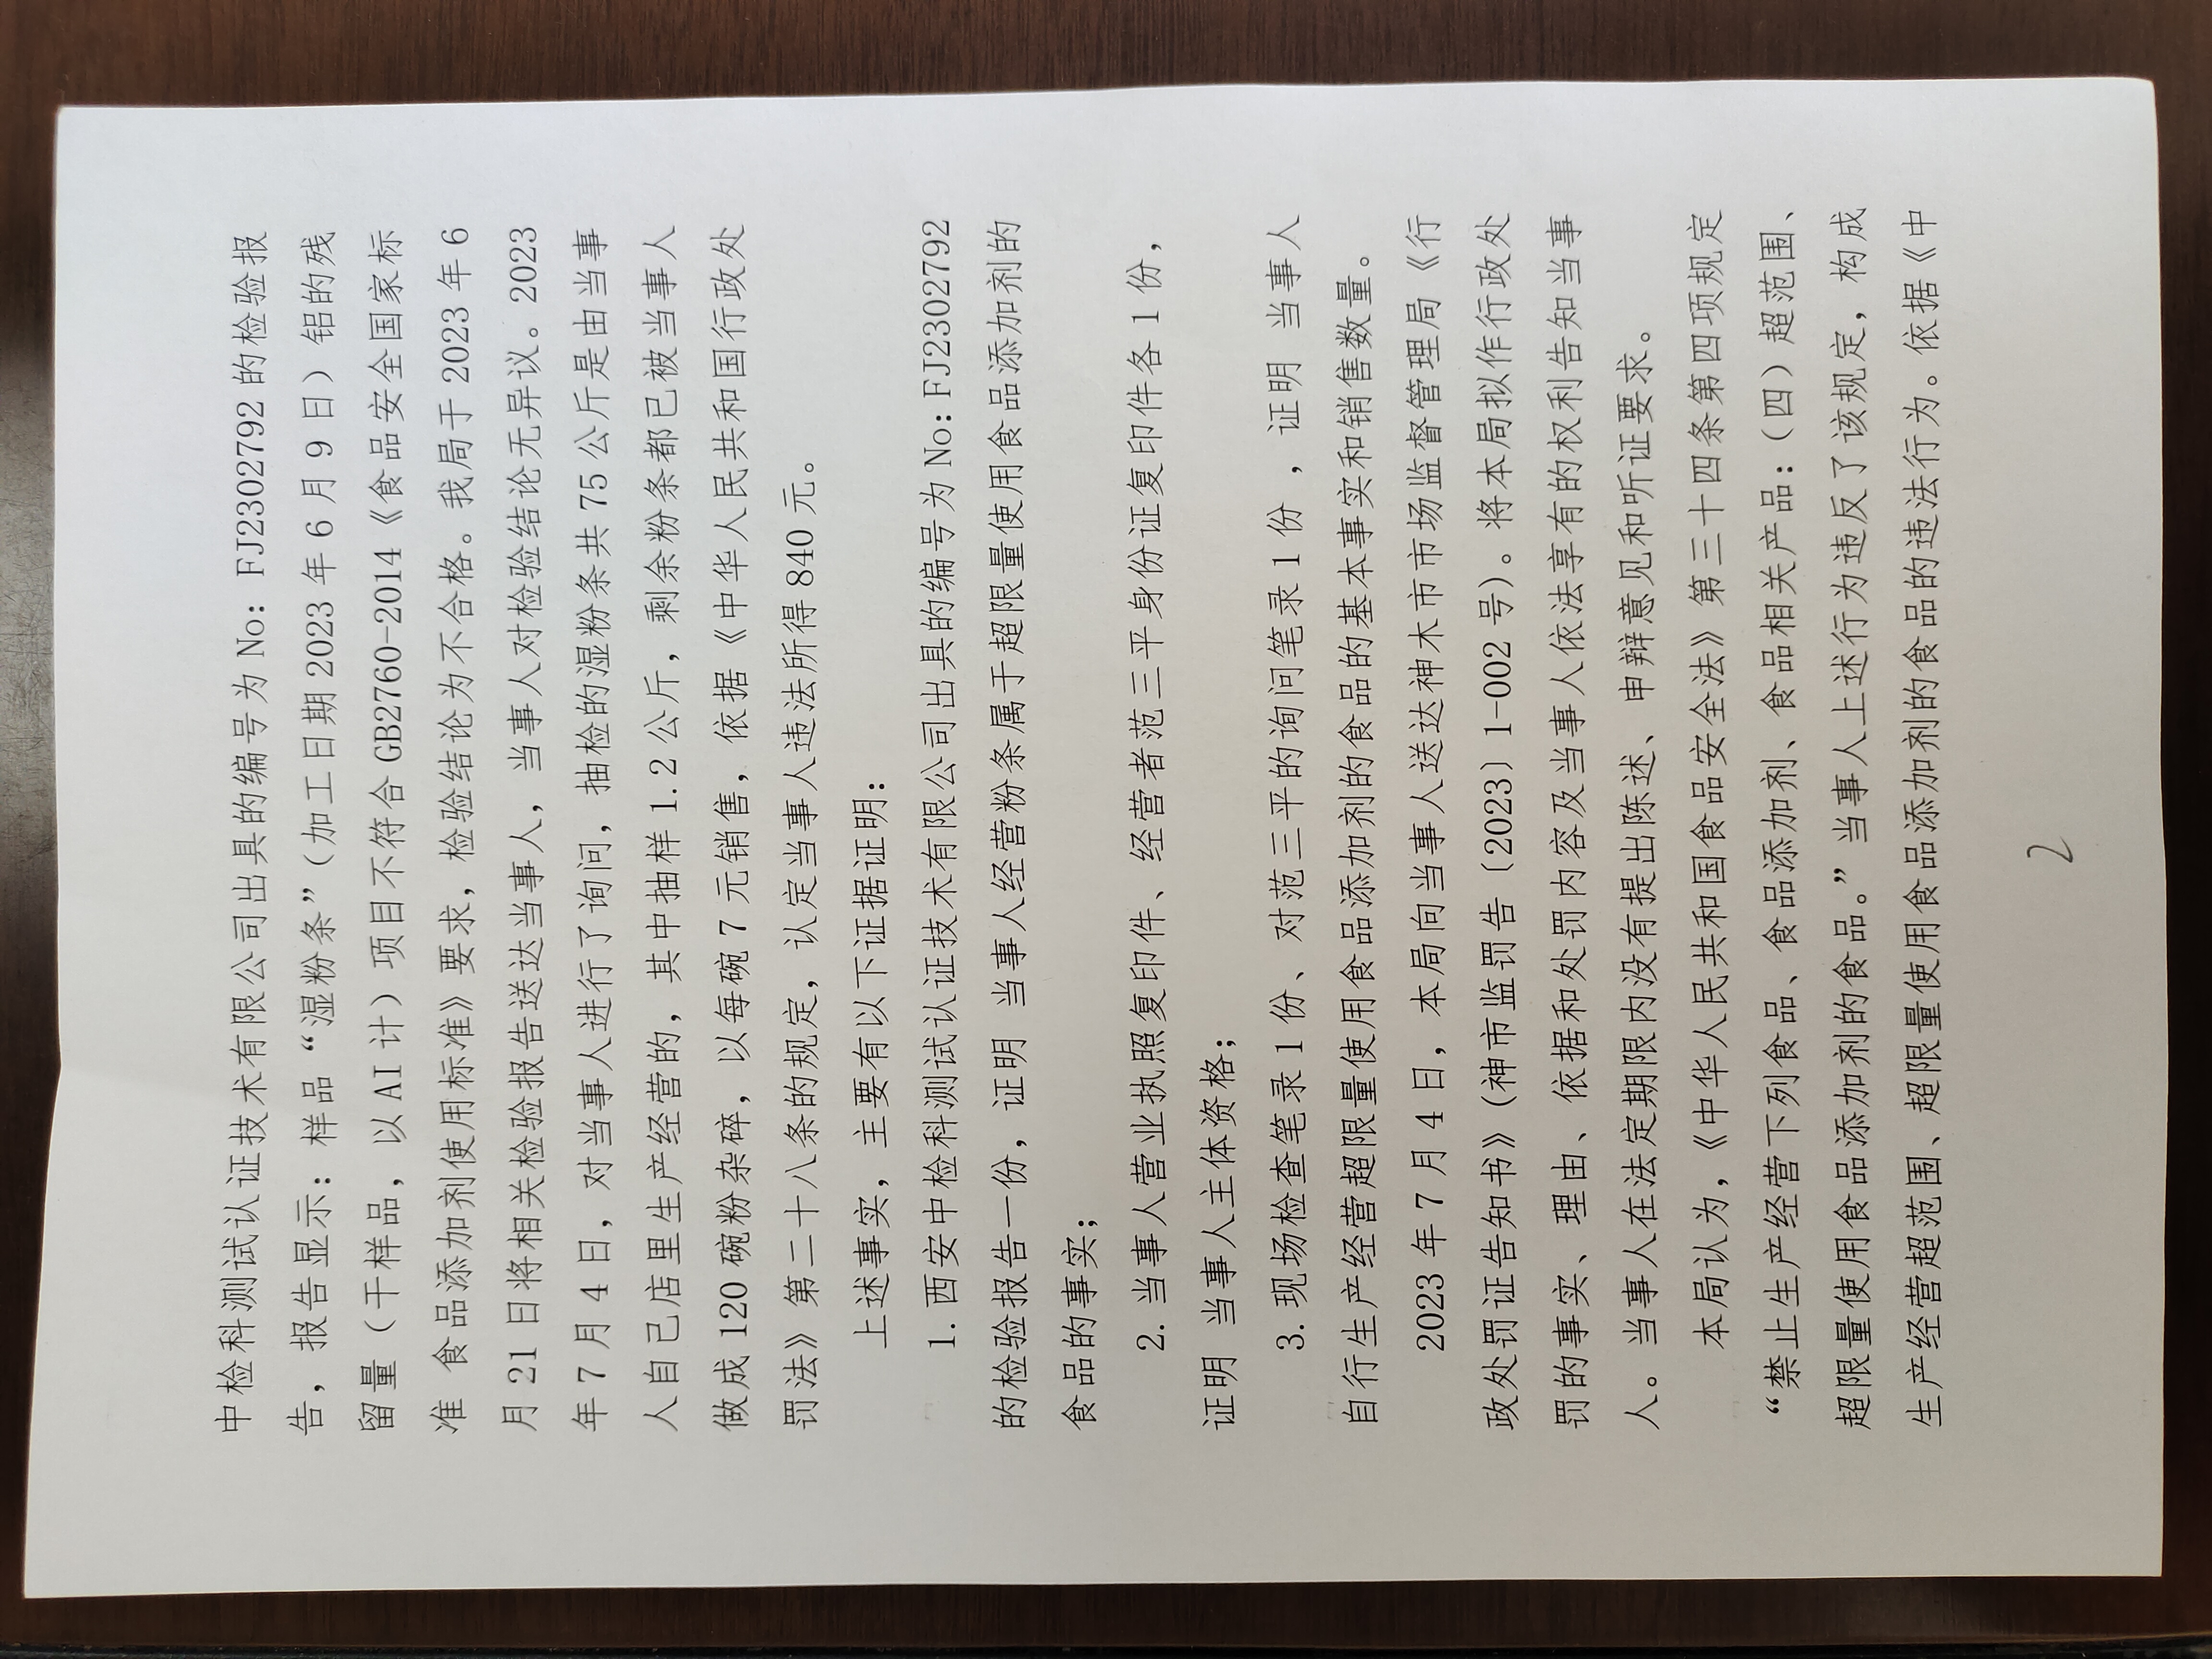 中检科测试认证技术有限公司出具的编号为 No: FJ2302792 的检验报
告，报告显示：样品 “湿粉条”（加工日期 2023 年 6 月 9 日）铝的残
留量（干样品，以 AI 计）项目不符合 GB2760-2014《食品安全国家标
准 食品添加剂使用标准》要求，检验结论为不合格。我局于 2023 年 6
月 21 日将相关检验报告送达当事人，当事人对检验结论无异议。2023
年 7 月 4 日，对当事人进行了询问，抽检的湿粉条共 75 公斤是由当事
人自己店里生产经营的，其中抽样 1.2 公斤，剩余粉条都已被当事人
做成 120 碗粉杂碎，以每碗 7 元销售，依据《中华人民共和国行政处
罚法》第二十八条的规定，认定当事人违法所得 840 元。
上述事实，主要有以下证据证明：
1. 西安中检科测试认证技术有限公司出具的编号为 No: FJ2302792
的检验报告一份，证明 当事人经营粉条属于超限量使用食品添加剂的
食品的事实；
2. 当事人营业执照复印件、经营者范三平身份证复印件各 1 份，
证明 当事人主体资格；
3. 现场检查笔录 1 份、对范三平的询问笔录 1 份 ，证明 当事人
自行生产经营超限量使用食品添加剂的食品的基本事实和销售数量。
2023 年 7 月 4 日，本局向当事人送达神木市市场监督管理局《行
政处罚证告知书》（神市监罚告〔2023〕1-002 号）。将本局拟作行政处
罚的事实、理由、依据和处罚内容及当事人依法享有的权利告知当事
人。当事人在法定期限内没有提出陈述、申辩意见和听证要求。
本局认为，《中华人民共和国食品安全法》第三十四条第四项规定
“禁止生产经营下列食品、食品添加剂、食品相关产品：（四）超范围、
超限量使用食品添加剂的食品。”当事人上述行为违反了该规定，构成
生产经营超范围、超限量使用食品添加剂的食品的违法行为。依据《中
2